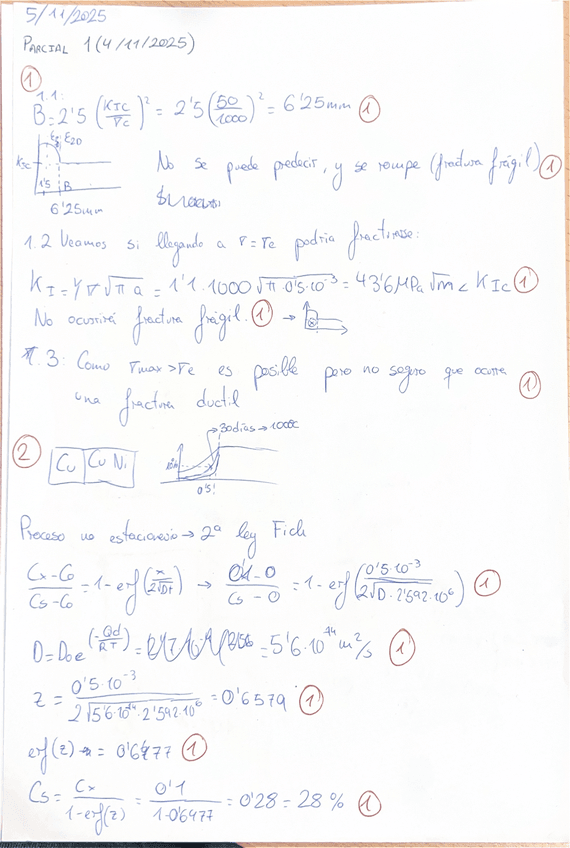 5/11/2025
PARCIAL 1 (4/11/2025)
1
1.1:
B = 2'5 (KIC/σc)² = 2'5 (50/1000)² = 6'25 mm 1
ε2D
KIC
1'5 B
6'25mm
No se puede predecir, y se rompe (fractura frágil) 1
1.2 Veamos si llegando a σ=σe podría fracturarse:
KI = Y σ √π a = 1'1 · 1000 √π · 0'5 · 10⁻³ = 43'6 MPa √m < KIC 1
No ocurrirá fractura frágil. 1 →
1.3: Como σmax > σe es posible pero no seguro que ocurra 1
una fractura ductil
2 Cu Cu Ni → 30 días → 1000ºC
0'5
Proceso no estacionario → 2ª ley Fick
Cx-C0/Cs-C0 = 1 - erf(x/2√Dt) → 0'1-0/Cs-0 = 1 - erf(0'5·10⁻³/2√D·2'592·10⁶) 1
D = D0 e^(-Qd/RT) = = 5'6·10⁻¹⁴ m²/s 1
z = 0'5·10⁻³/2√5'6·10⁻¹⁴·2'592·10⁶ = 0'6579 1
erf(z) = 0'6477 1
Cs = Cx/1-erf(z) = 0'1/1-0'6477 = 0'28 = 28 % 1